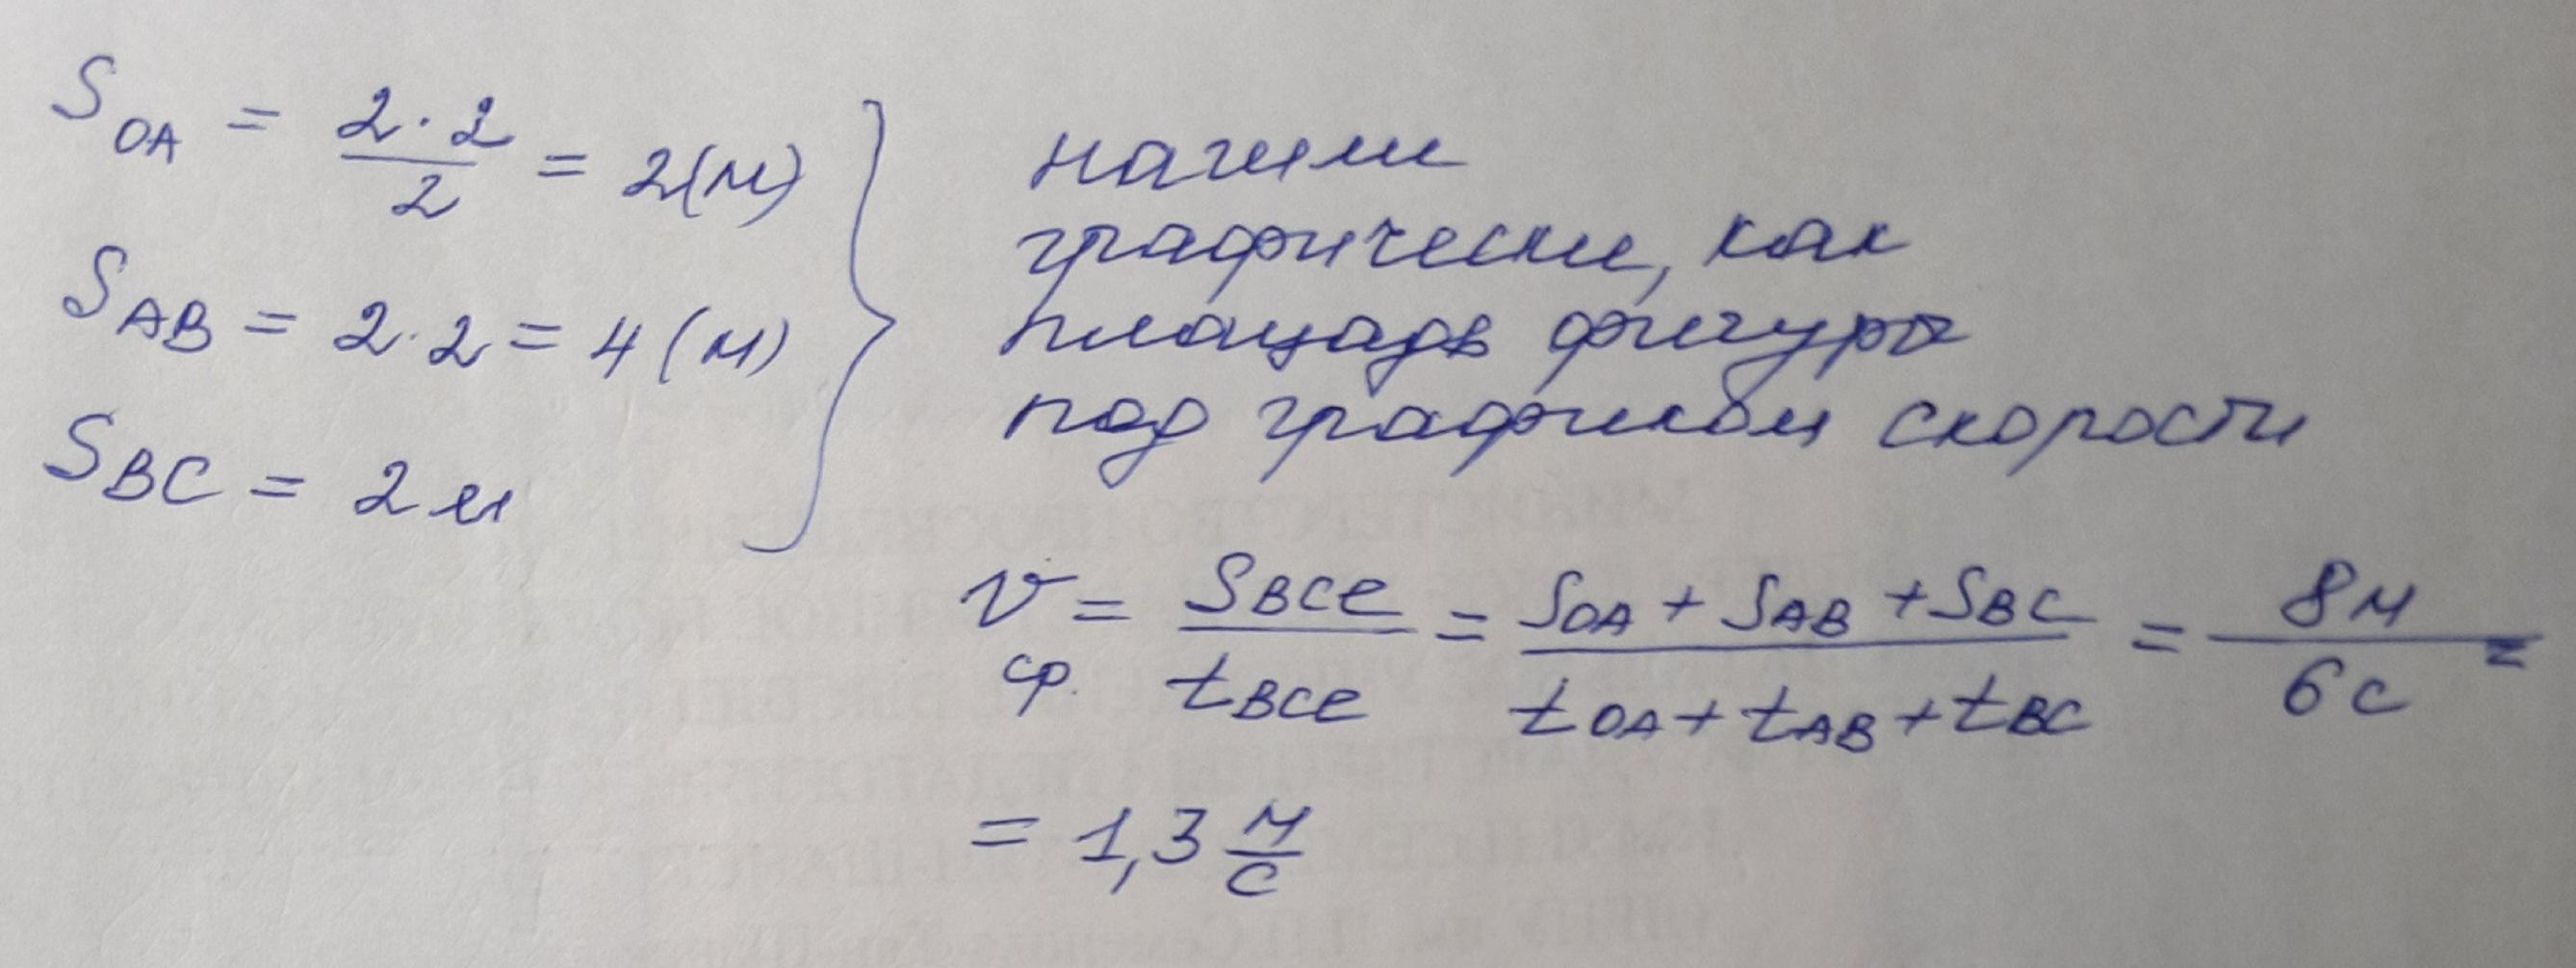 S_OA = 2·2/2 = 2(м)
S_AB = 2·2 = 4 (м)
S_BC = 2 м
нашли
графически, как
площадь фигуры
под графиком скорости
v ср. = S все / t все = S_OA + S_AB + S_BC / t_OA + t_AB + t_BC = 8 м / 6 с =
= 1,3 м/с